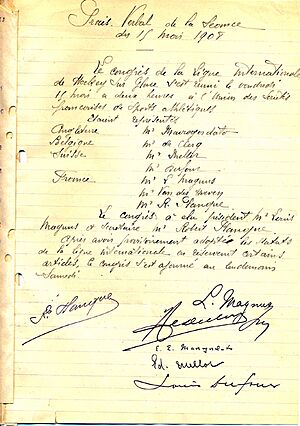 Procès Verbal de la Séance
du 15 mai 1908
Le congrès de la Ligue Internationale
de Hockey sur Glace s'est réuni le vendredi
15 mai à deux heures à l'Union des Sociétés
Françaises de Sports Athlétiques
Étaient représentés
Angleterre Mr Mavrogordato
Belgique Mr de Clerq
Suisse Mr Mellor
Mr Dufour
France Mr L Magnus
Mr Van der Hoeven
Mr R. Planque
Le congrès a élu président Mr Louis
Magnus et secrétaire Mr Robert Planque
Après avoir provisoirement adopté les statuts
de la ligue Internationale en réservant certains
articles, le congrès s'est ajourné au lendemain
Samedi
R. Planque
L. Magnus
E. E. Mavrogordato
Ed. Mellor
Louis Dufour